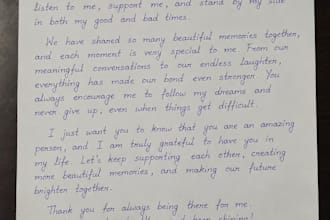 listen to me, support me, and stand by my side
in both my good and bad times.
We have shared so many beautiful memories together,
and each moment is very special to me. From our
meaningful conversations to our endless laughter,
everything has made our bond even stronger. You
always encourage me to follow my dreams and
never give up, even when things get difficult.
I just want you to know that you are an amazing
person, and I am truly grateful to have you in
my life. Let's keep supporting each other, creating
more beautiful memories, and making our future
brighter together.
Thank you for always being there for me.